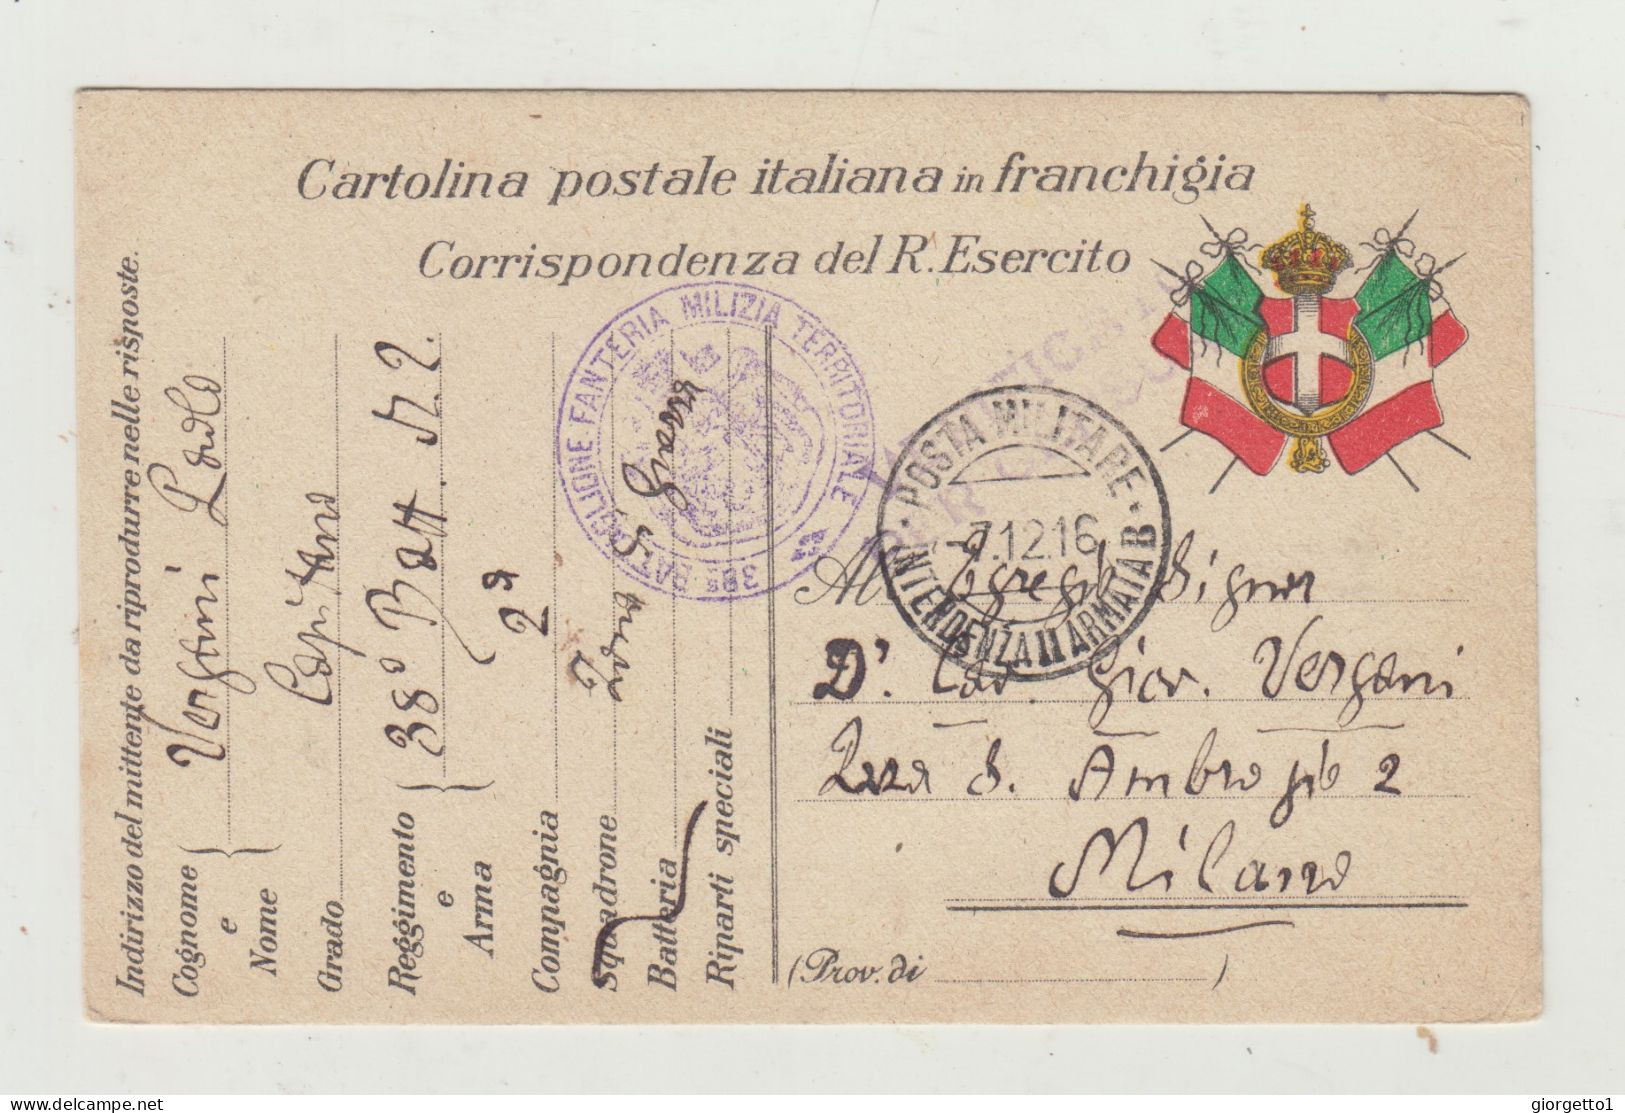 Cartolina postale italiana in franchigia
Corrispondenza del R. Esercito
Indirizzo del mittente da riprodurre nelle risposte.
Cognome e Nome { Vergani Paolo
Grado Capitano
Reggimento e Arma { 38° Batt. M. T.
Compagnia 2ª
Squadrone
Batteria
Riparti speciali
Zona di Guerra
38° BATTAGLIONE FANTERIA MILIZIA TERRITORIALE
POSTA MILITARE
-7.12.16
INTENDENZA II ARMATA B
Al Egregio Signor
Dr. Cav. Giov. Vergani
S. Ambrogio 2
Milano
(Prov. di )
delcampe.net
giorgetto1